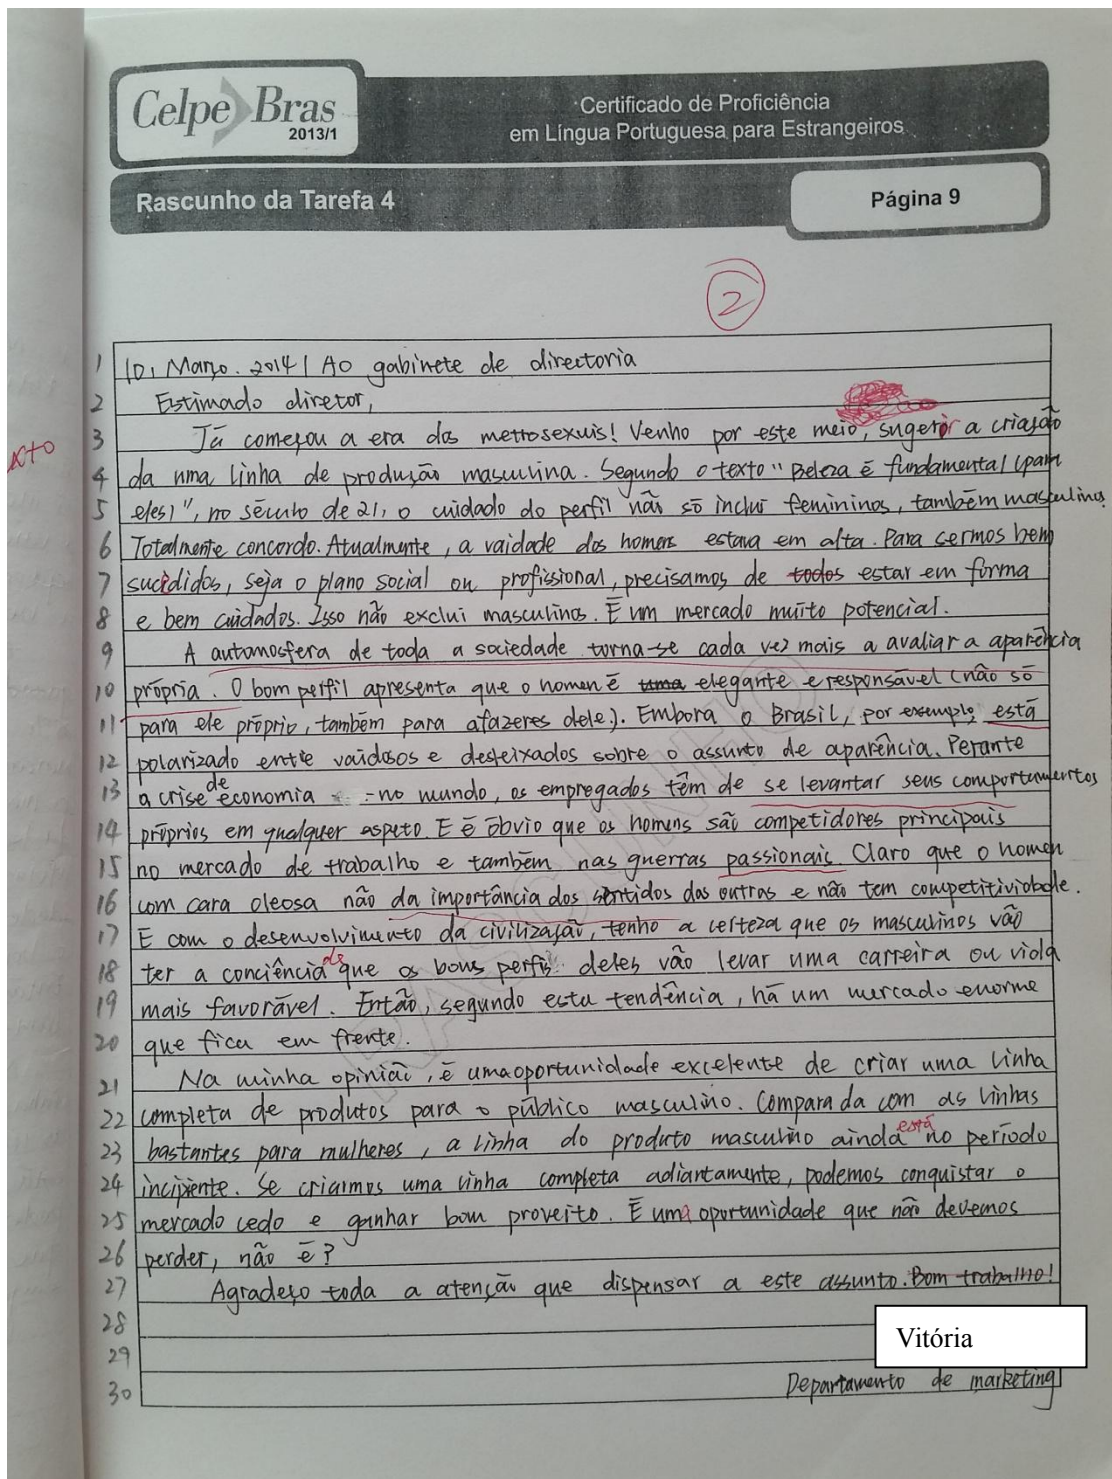 Celpe Bras
2013/1
Certificado de Proficiência
em Língua Portuguesa para Estrangeiros
Rascunho da Tarefa 4
Página 9
2
1 10, Março. 2014 / Ao gabinete de directoria
2 Estimado diretor,
3 Já começou a era dos metrosexuis! Venho por este meio, sugerir a criação
4 da uma linha de produção masculina. Segundo o texto "Beleza é fundamental (para
5 eles)", no século de 21, o cuidado do perfil não só inclui femininos, também masculinos
6 Totalmente concordo. Atualmente, a vaidade dos homens estava em alta. Para sermos bem
7 sucedidos, seja o plano social ou profissional, precisamos de todos estar em forma
8 e bem cuidados. Isso não exclui masculinos. É um mercado muito potencial.
9 A automosfera de toda a sociedade torna-se cada vez mais a avaliar a aparência
10 própria. O bom perfil apresenta que o homen é uma elegante e responsável (não só
11 para ele próprio, também para afazeres dele). Embora o Brasil, por exemplo, está
12 polarizado entre vaidosos e desleixados sobre o assunto de aparência. Perante
13 a crise de economia no mundo, os empregados têm de se levantar seus comportamentos
14 próprios em qualquer aspeto. E é óbvio que os homens são competidores principais
15 no mercado de trabalho e também nas guerras passionais. Claro que o homen
16 com cara oleosa não da importância dos sentidos das outras e não tem competitividade.
17 E com o desenvolvimento da civilização, tenho a certeza que os masculinos vão
18 ter a conciência de que os bons perfis deles vão levar uma carreira ou vida
19 mais favorável. Então, segundo esta tendência, há um mercado enorme
20 que fica em frente.
21 Na minha opinião, é uma oportunidade excelente de criar uma linha
22 completa de produtos para o público masculino. Comparada com as linhas
23 bastantes para mulheres, a linha do produto masculino ainda está no período
24 incipiente. Se criarmos uma linha completa adiantamente, podemos conquistar o
25 mercado cedo e ganhar bom proveito. É uma oportunidade que não devemos
26 perder, não é?
27 Agradeço toda a atenção que dispensar a este assunto. Bom trabalho!
28
29 Vitória
30 Departamento de marketing
RASCUNHO